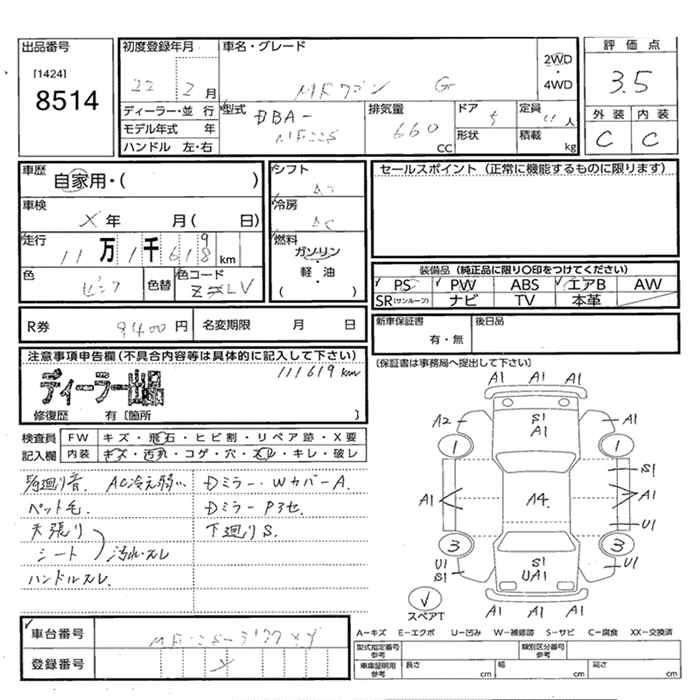 出品番号
[1424]
8514
初度登録年月
22 2月
車名・グレード
MRワゴン G
2WD
・
4WD
評価点
3.5
外装 内装
C C
ディーラー・並 行
モデル年式 年
ハンドル 左・右
型式
DBA-
排気量
660
CC
ドア 5
形状
定員 人
積載 kg
車歴
自家用・( )
車検
X 年 月( 日)
走行
11万1千619km
色
ピンク
色替
色コード
ZLV
シフト
AT
冷房
AC
燃料
ガソリン
・
軽・油
( )
セールスポイント (正常に機能するものに限ります)
装備品 (純正品に限り○印をつけてください)
PS PW ABS エアB AW
SR(サンルーフ) ナビ TV 本革
R券 9400円
名変期限 月 日
新車保証書
有・無
後日品
(保証書は事務局へ提出して下さい)
注意事項申告欄(不具合内容等は具体的に記入して下さい)
111619km
ディーラー出品
修復歴 有〔箇所 〕
検査員
記入欄
FW キズ・飛石・ヒビ割・リペア跡・X要
内装 キズ・汚れ・コゲ・穴・スレ・キレ・破レ
AC冷え弱い
Dミラー・WカバーA.
ペット毛.
Dミラー P3セ.
天張り
シート
汚れ・スレ
下廻りS.
ハンドルスレ.
A1 A1 A1
A2 S1 A1 A1
1 1
S1
A1 A4. A1
U1
3 3
U1 S1 U1
S1 UA1
スペアT
A1 A1 A1
A-キズ E-エクボ U-凹み W-補修跡 S-サビ C-腐食 XX-交換済
車台番号
登録番号
型式指定番号
参考
類別区分番号
参考
車庫証明用
参考
長さ cm
幅 cm
高さ cm